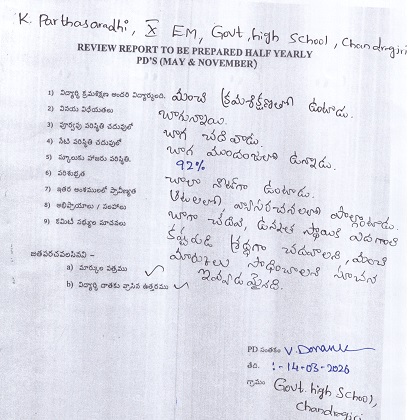 K. Parthasaradhi, X EM, Govt, high School, Chandragiri
REVIEW REPORT TO BE PREPARED HALF YEARLY
PD'S (MAY & NOVEMBER)
1) విద్యార్థి క్రమశిక్షణ ఇందరి విద్యార్థులది. మంచి క్రమశిక్షణతో ఉంటాడు.
2) వినయ విధేయతలు బాగున్నాయి.
3) పూర్వపు పరిస్థితి చదువులో బాగ చదివాడు.
4) నేటి పరిస్థితి చదువులో బాగ ముందంజలో ఉన్నాడు.
5) స్కూలుకు హాజరు పరిస్థితి. 92%
6) పరిశుభ్రత చాలా నీట్‌గా ఉంటాడు.
7) ఇతర అంశములలో ప్రావీణ్యత ఆటలలో, వ్యాసరచనలలో పాల్గొంటాడు.
8) అభిప్రాయాలు / సలహాలు బాగా చదివి, ఉన్నత స్థాయికి ఎదగాలి
9) కమిటీ సభ్యుల సూచనలు కష్టపడి శ్రద్ధగా చదువాలని, మంచి
మార్కులు సాధించాలని సూచన
ఇవ్వడమైనది.
జతపరచవలసినవి –
a) మార్కుల పత్రము ✓
b) విద్యార్థి దాతకు వ్రాసిన ఉత్తరము ✓
PD సంతకం V.
తేది. :- 14-03-2026
గ్రామం Govt. high School,
Chandragiri